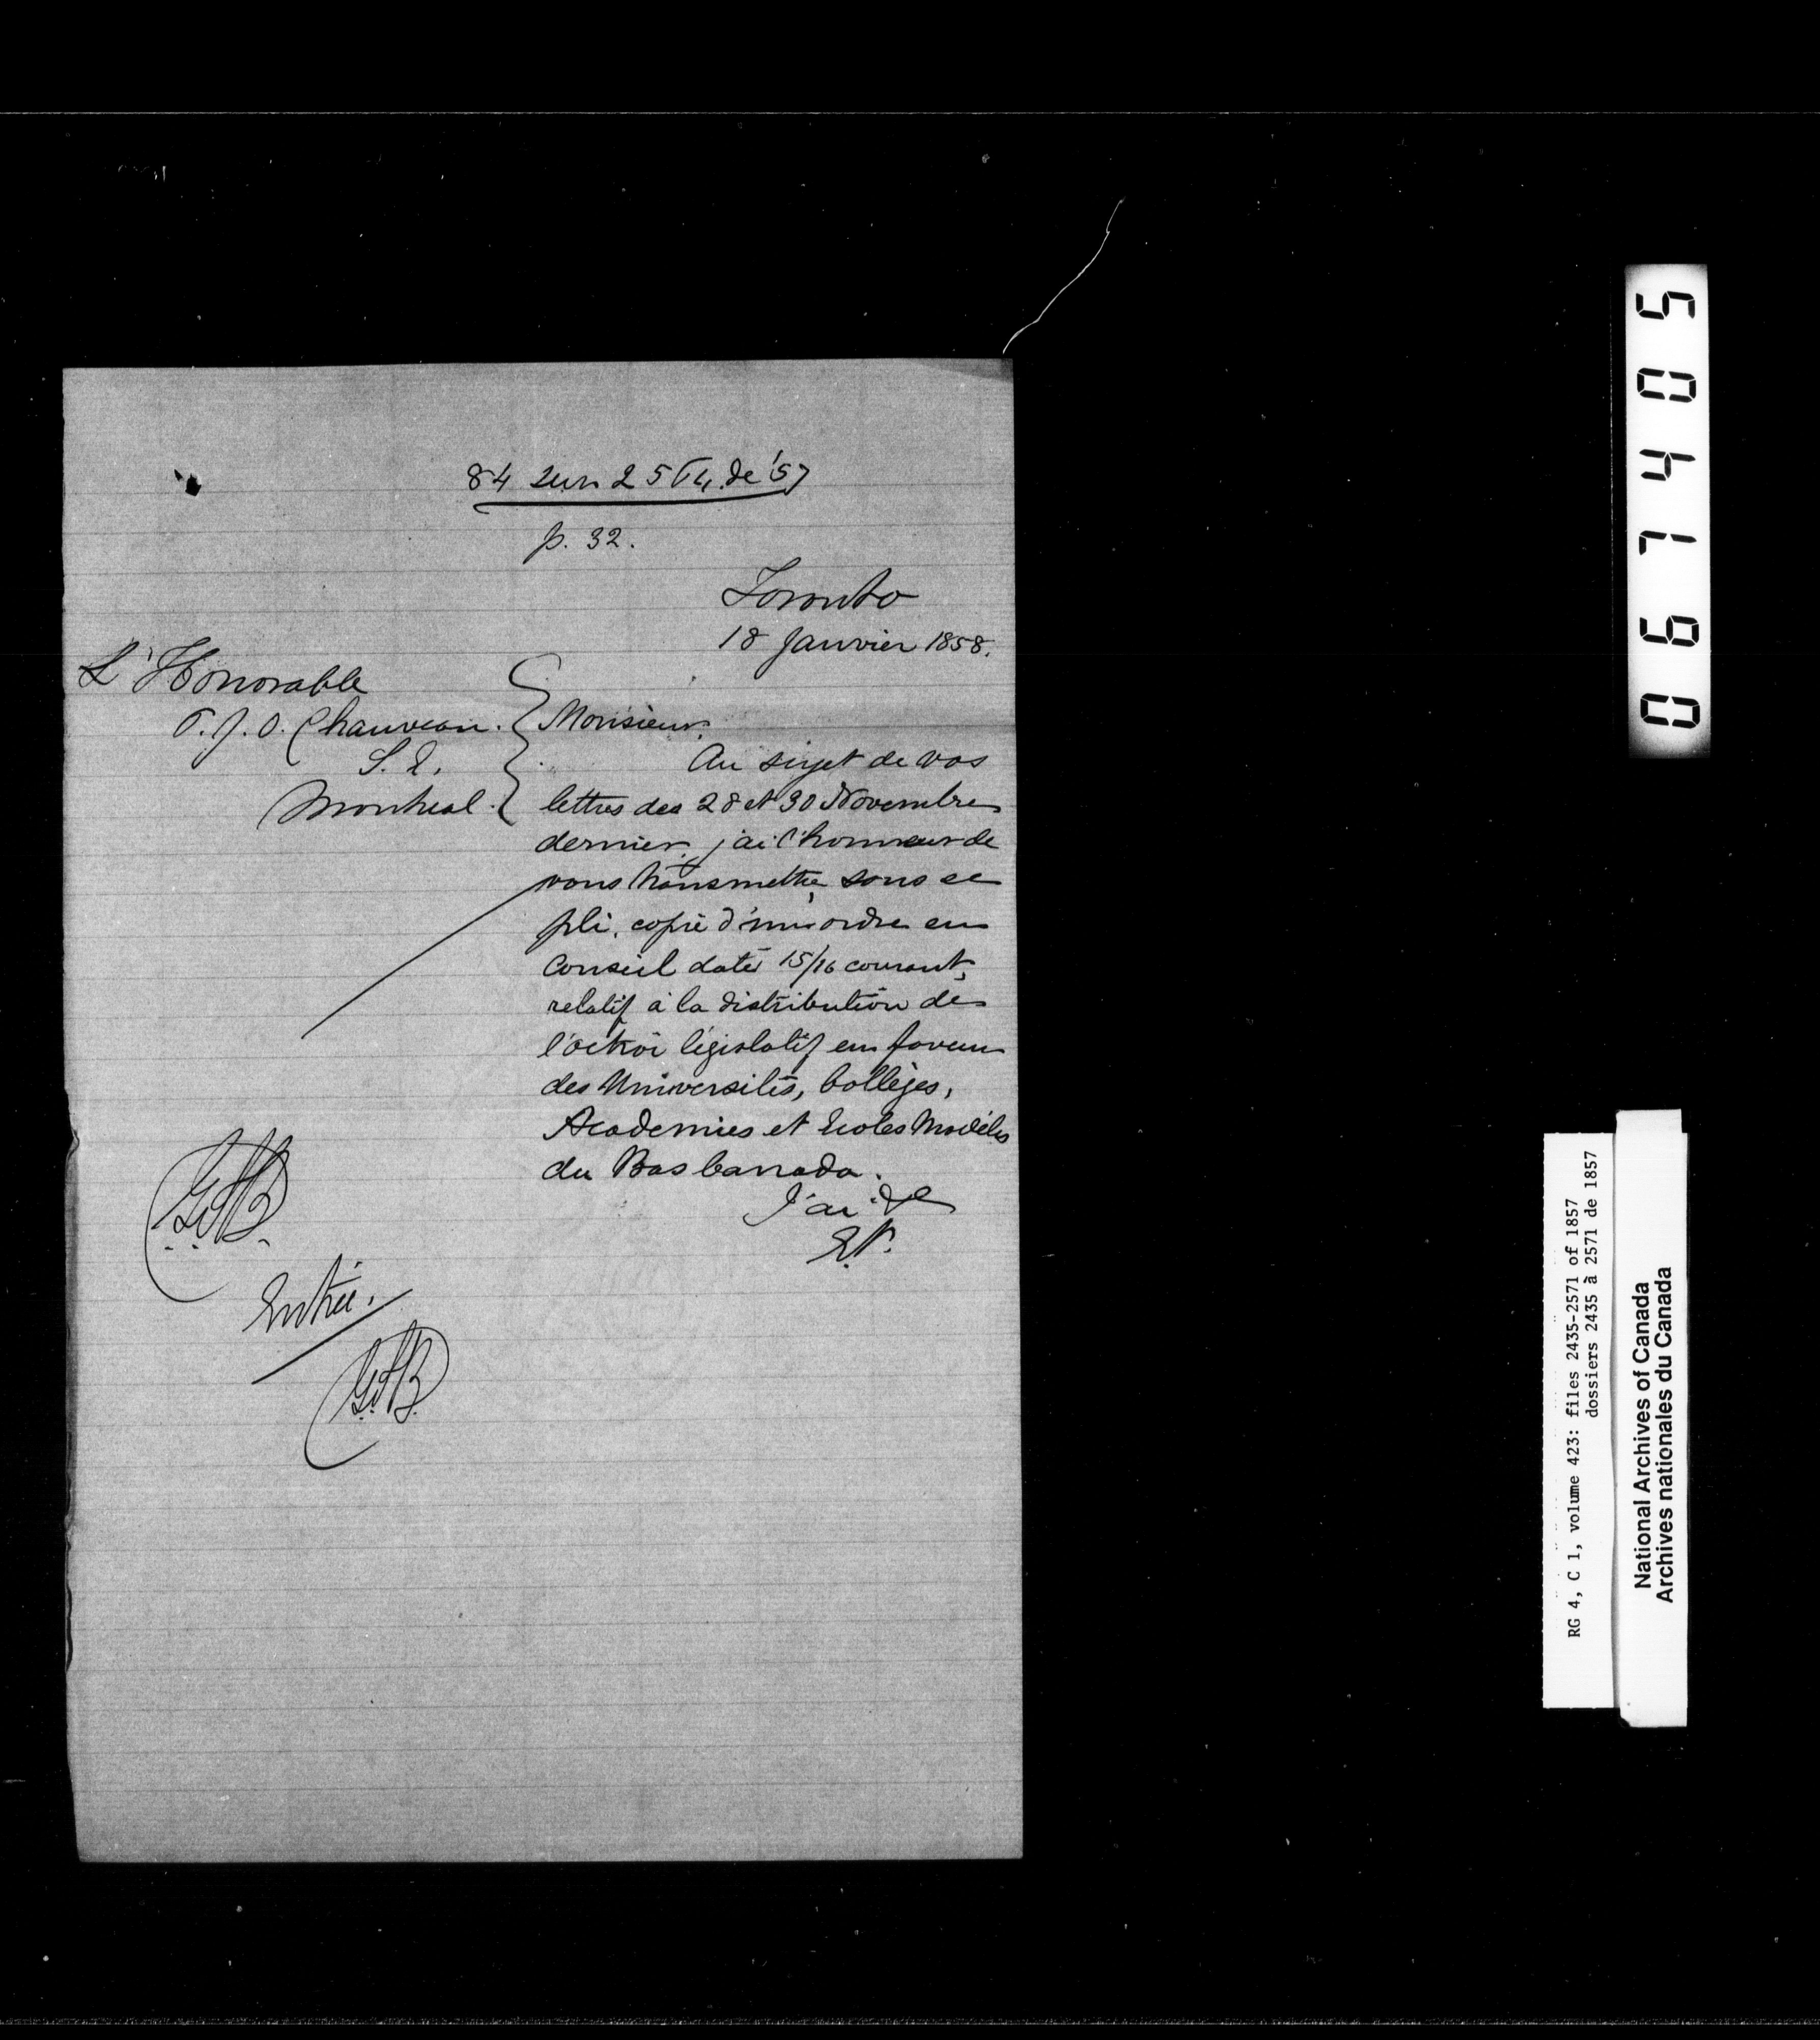 84 sur 2564 de '57
p. 32.
Toronto
18 Janvier 1858.
L'Honorable
P. J. O. Chauveau.
S. E.
Montreal.
Monsieur,
Au sujet de vos
lettres des 28 et 30 Novembre
dernier, j'ai l'honneur de
vous transmettre, sous ce
pli, copie d'un ordre en
Conseil daté 15/16 courant,
relatif à la distribution de
l'octroi législatif en faveur
des Universités, Collèges,
Academies et Ecoles Modèles
du Bas Canada.
J'ai &c
E.P.
Entrée.
067405
RG 4, C 1, volume 423: files 2435-2571 of 1857
dossiers 2435 à 2571 de 1857
National Archives of Canada
Archives nationales du Canada